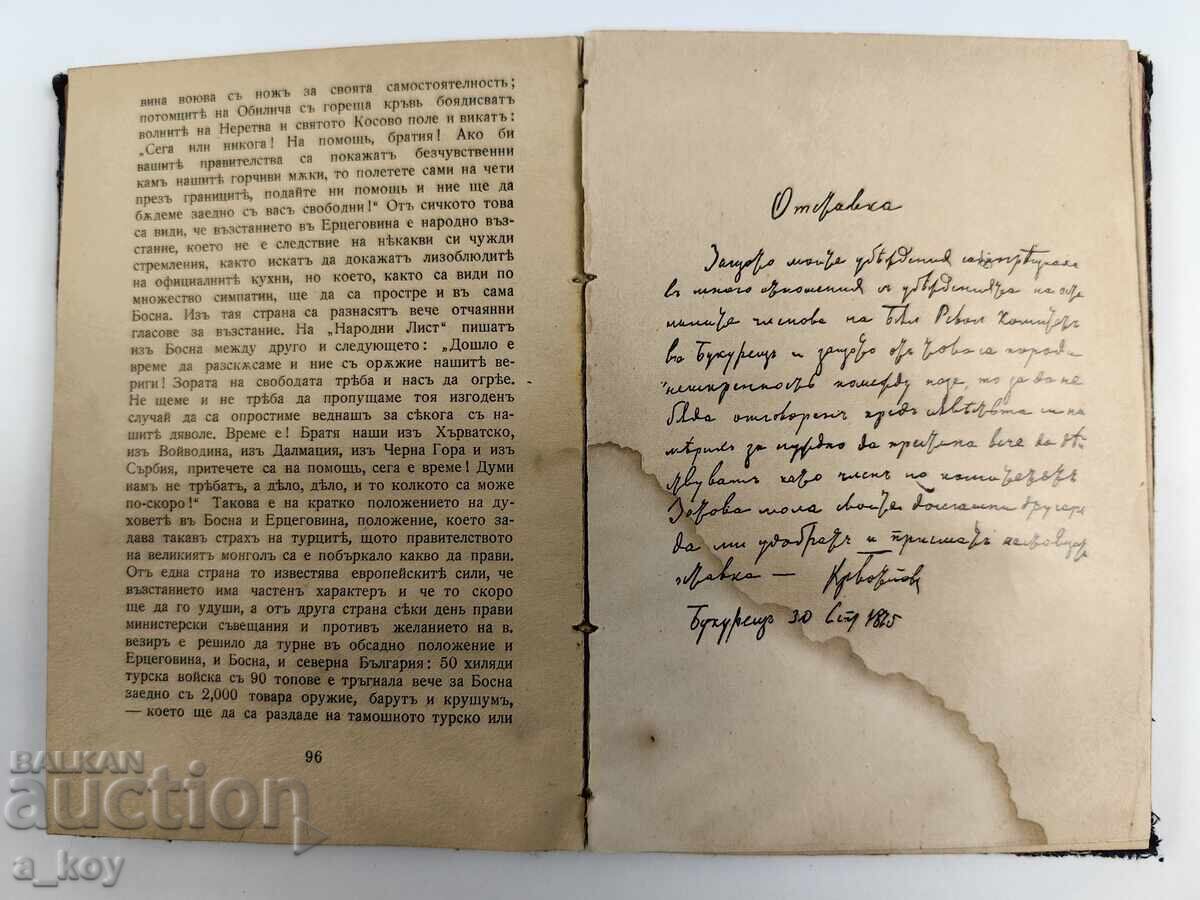 вина воюва съ ножъ за своята самостоятелность;
потомцитѣ на Обилича съ гореща кръвь боядисватъ
волнитѣ на Неретва и святото Косово поле и викатъ:
„Сега или никога! На помощь, братия! Ако би
вашитѣ правителства са покажатъ безчувственни
камъ нашитѣ горчиви мѫки, то полетете сами на чети
презъ границитѣ, подайте ни помощь и ние ще да
бѫдеме заедно съ васъ свободни!“ Отъ сичкото това
са види, че възстанието въ Ерцеговина е народно въз-
стание, което не е следствие на нѣкакви си чужди
стремления, както искатъ да докажатъ лизоблюдитѣ
на официалнитѣ кухни, но което, както са види по
множество симпатии, ще да са простре и въ сама
Босна. Изъ тая страна са разнасятъ вече отчаянни
гласове за възстание. На „Народни Листъ“ пишатъ
изъ Босна между друго и следующето: „Дошло е
време да разскѫсаме и ние съ орѫжие нашитѣ ве-
риги! Зората на свободата трѣба и насъ да огрѣе.
Не щеме и не трѣба да пропущаме тоя изгоденъ
случай да са опростиме веднашъ за сѣкога съ на-
шитѣ дяволе. Време е! Братя наши изъ Хърватско,
изъ Войводина, изъ Далмация, изъ Черна Гора и изъ
Сърбия, притечете са на помощь, сега е време! Думи
намъ не трѣбатъ, а дѣло, дѣло, и то колкото са може
по-скоро!“ Такова е на кратко положението на ду-
ховетѣ въ Босна и Ерцеговина, положение, което за-
дава такавъ страхъ на турцитѣ, щото правителството
на великиятъ монголъ са е побъркало какво да прави.
Отъ една страна то известява европейскитѣ сили, че
възстанието има частенъ характеръ и че то скоро
ще да го удуши, а отъ друга страна сѣки день прави
министерски съвещания и противъ желанието на в.
везиръ е решило да турне въ обсадно положение и
Ерцеговина, и Босна, и северна България: 50 хиляди
турска войска съ 90 топове е тръгнала вече за Босна
заедно съ 2,000 товара оружие, барутъ и крушумъ,
— което ще да са раздаде на тамошното турско или
96
Отставка
Защото моите убѣждения
въ много отношения съ убѣжденията на оста
налите членове на Бъл Револ Комитетъ
въ Букурещъ и защото отъ това са породи
неискренность помежду нази, то за да не
бѫда отговоренъ предъ
мѣрихъ за нуждно да престана вече да дѣй
ствувамъ като членъ по комитетътъ
Затова моля своите досегашни другари
да ми удобратъ и приематъ
ставка — Хр Ботйов
Букурещъ 30 Септ 1875
BALKAN
auction
a_koy